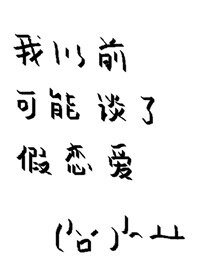 我以前
可能谈了
假恋爱
('ㅁ')